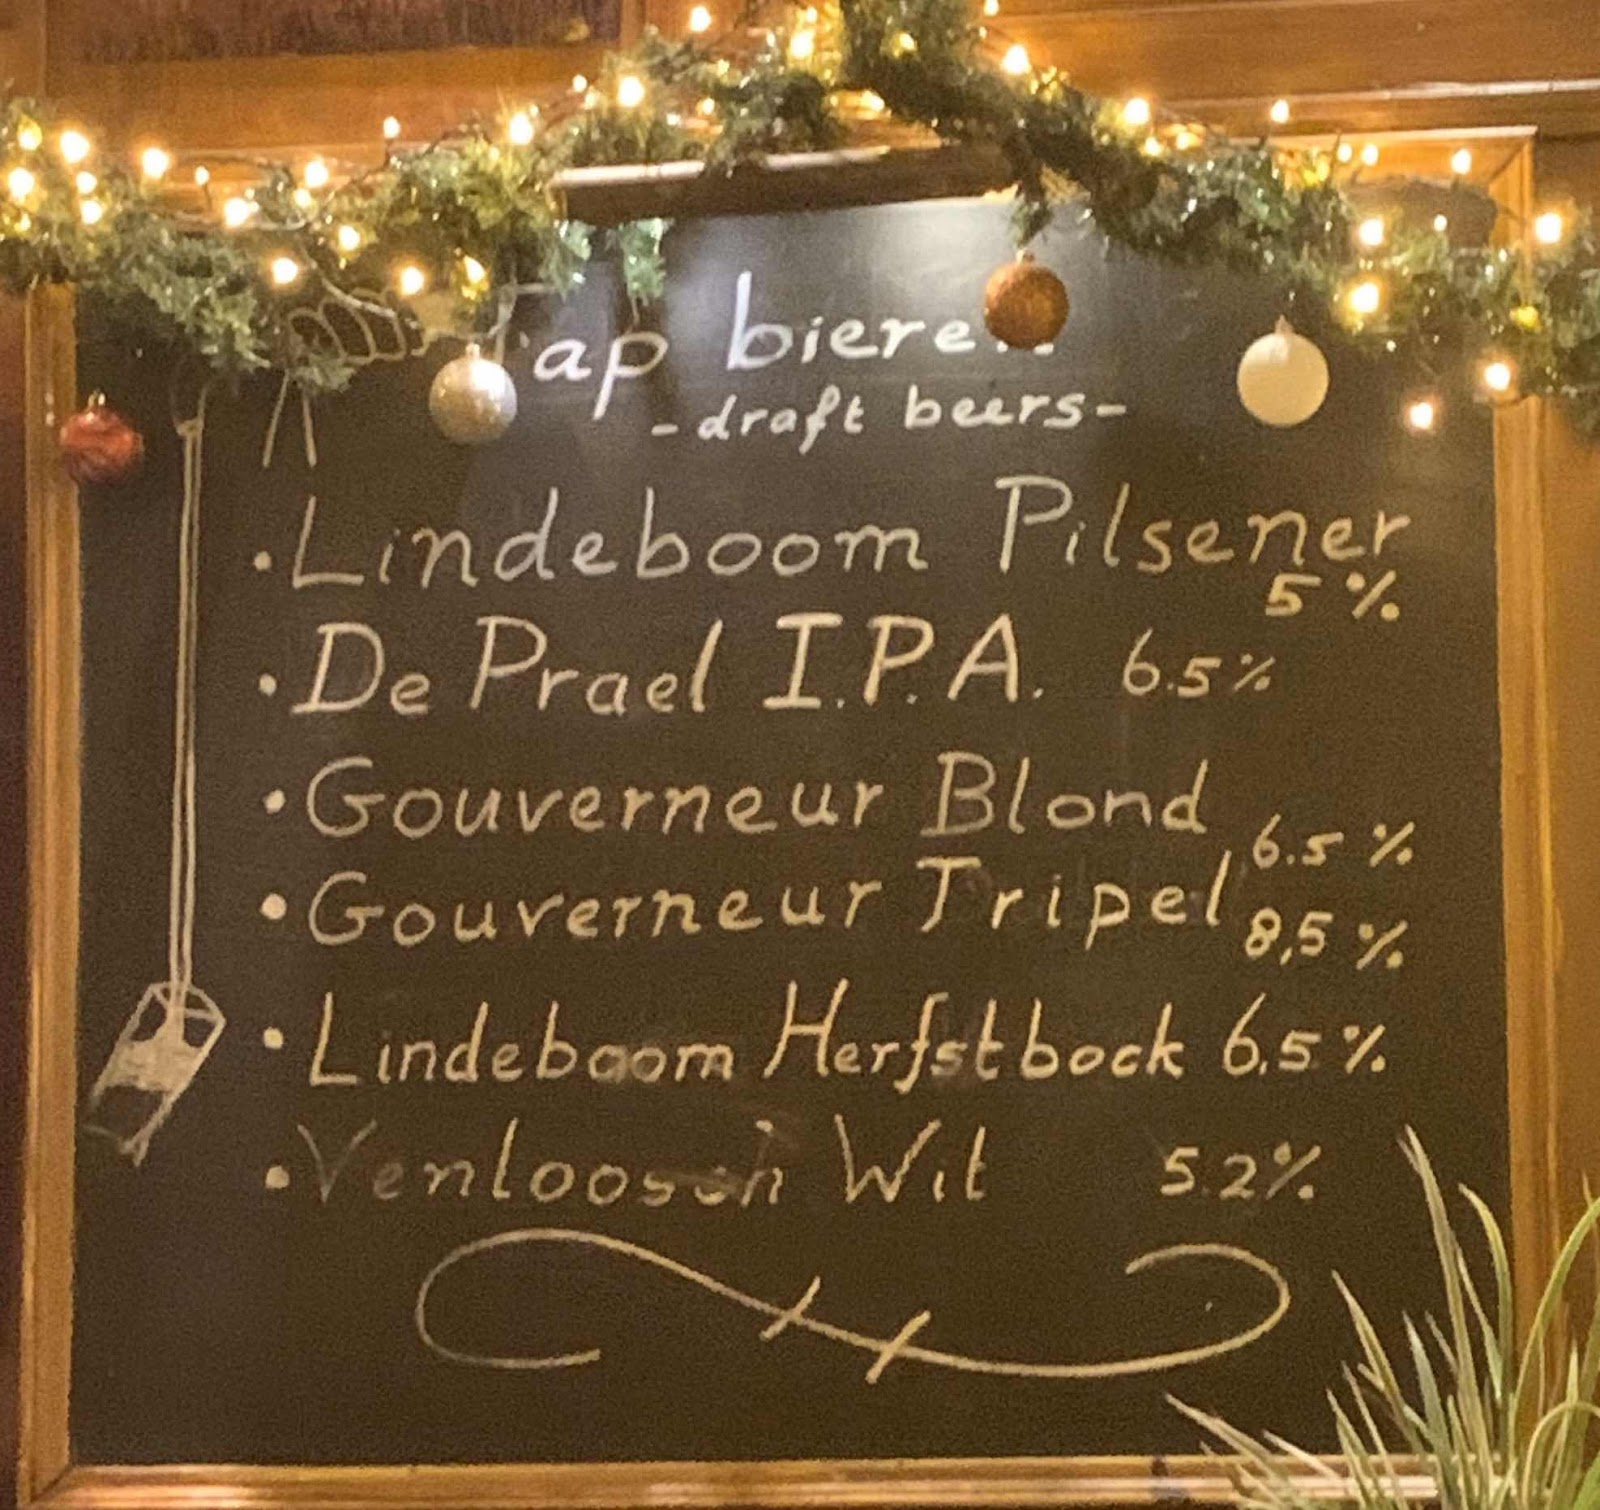 Tap bieren
-draft beers-
· Lindeboom Pilsener
5%
· De Prael I.P.A. 6.5%
· Gouverneur Blond
6.5%
· Gouverneur Tripel
8,5%
· Lindeboom Herfstbock 6.5%
· Venloosch Wit 5.2%